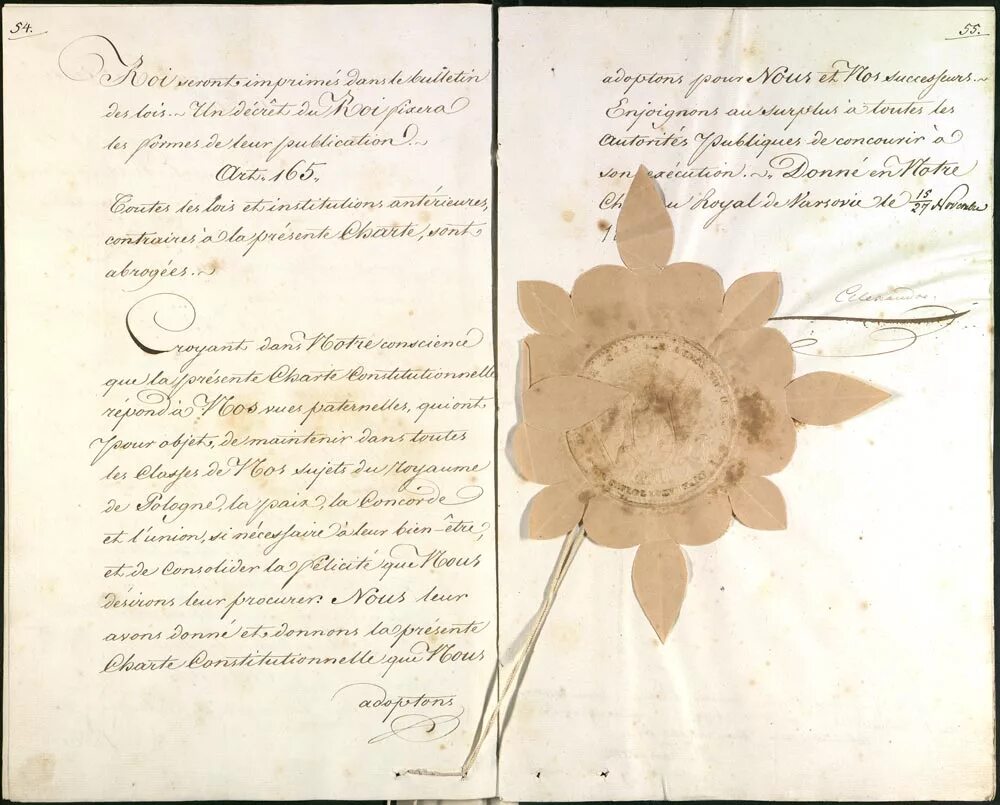 54.
Roi seront imprimés dans le bulletin
des lois.~ Un décrêt du Roi fixera
les formes de leur publication.~
Art. 165.
Toutes les lois et institutions antérieures,
contraires à la présente Charte, sont
abrogées.~
Croyant dans Notre conscience
que la présente Charte Constitutionnelle
répond à Nos vues paternelles, qui ont
pour objet, de maintenir dans toutes
les Classes de Nos sujets du royaume
de Pologne, la paix, la Concorde
et l'union, si nécessaire à leur bien-être,
et de consolider la félicité que Nous
désirons leur procurer: Nous leur
avons donné et donnons la présente
Charte Constitutionnelle que Nous
adoptons
55.
adoptons pour Nous et Nos successeurs.~
Enjoignons au surplus à toutes les
Autorités Publiques de concourir à
son exécution.~ Donné en Notre
Royal de Varsovie le 15/27 Novembre
Alexandre.